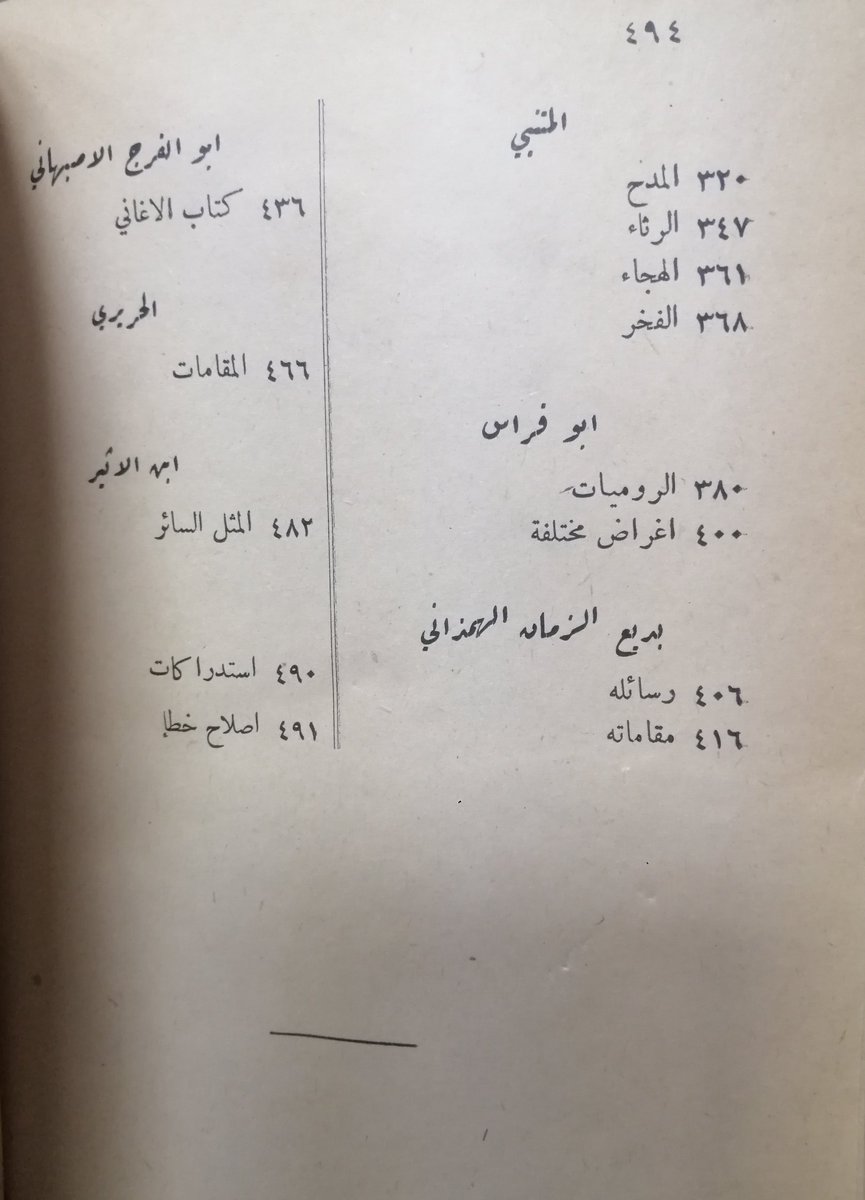 ٤٩٤
المتنبي
٣٢٠ المدح
٣٤٧ الرثاء
٣٦١ الهجاء
٣٦٨ الفخر
ابو فراس
٣٨٠ الروميات
٤٠٠ اغراض مختلفة
بديع الزمان الهمذاني
٤٠٦ رسائله
٤١٦ مقاماته
ابو الفرج الاصبهاني
٤٣٦ كتاب الاغاني
الحريري
٤٦٦ المقامات
ابن الاثير
٤٨٢ المثل السائر
٤٩٠ استدراكات
٤٩١ اصلاح خطإ